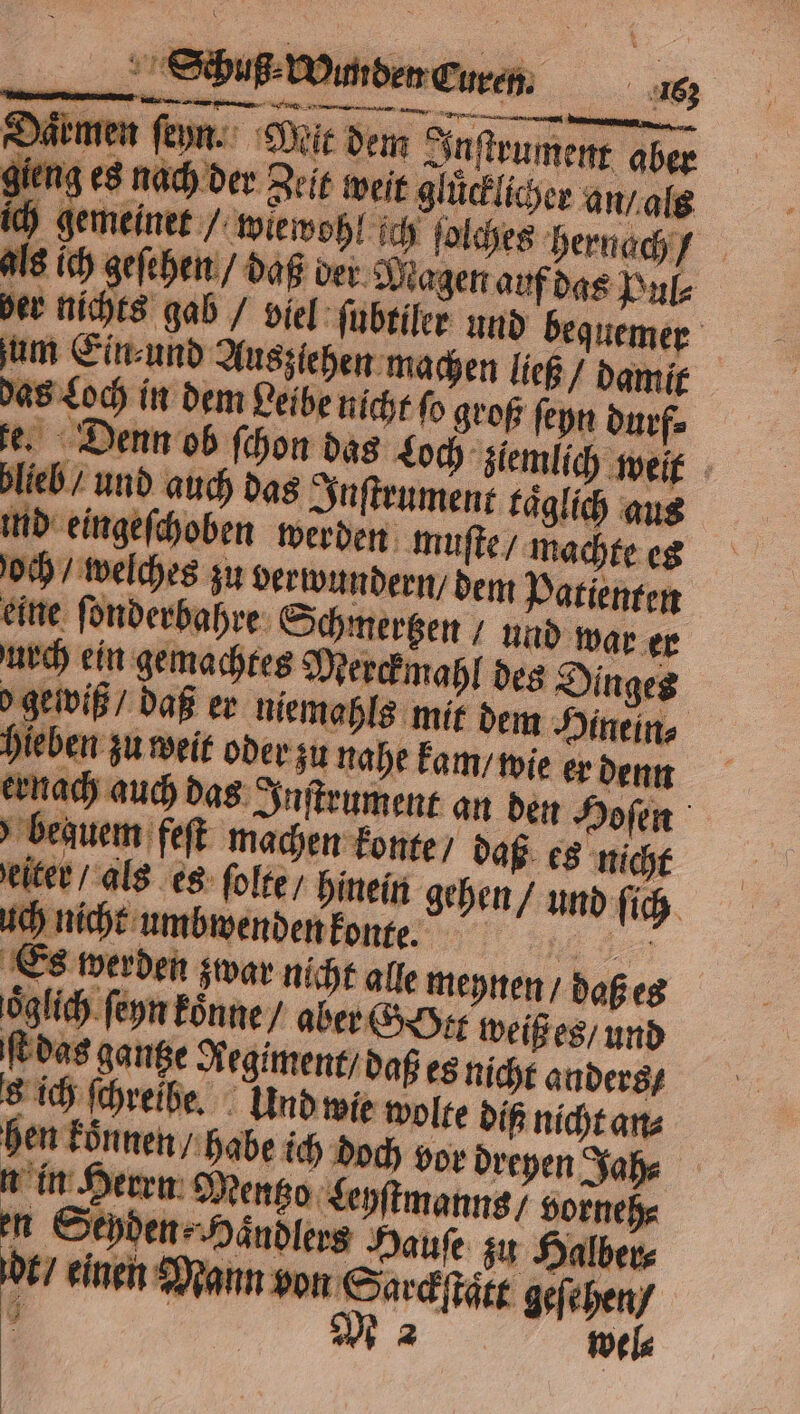 Schuß⸗Wunden Curen. 163
Daͤrmen ſeyn. Mit dem Inſtrument aber
gieng es nach der Zeit weit gluͤcklicher an/ als
ich gemeinet / wiewohl ich ſolches hernach /
als ich geſehen / daß der Magen auf das Pul⸗
ver nichts gab / viel ſubtiler und bequemer
zum Ein⸗und Ausziehen machen ließ / damit
das Loch in dem Leibe nicht ſo groß ſeyn durf⸗
te. Denn ob ſchon das Loch ziemlich weit
blieb / und auch das Inſtrument taͤglich aus
und eingeſchoben werden muſte / machte es
doch / welches zu verwundern / dem Patienten
eine ſonderbahre Schmertzen / und war er
urch ein gemachtes Merckmahl des Dinges
o gewiß / daß er niemahls mit dem Hinein⸗
hieben zu weit oder zu nahe kam / wie er denn
ernach auch das Inſtrument an den Hoſen
o bequem feſt machen konte / daß es nicht
eiter / als es ſolte / hinein gehen / und ſich
uch nicht umbwenden konte.
Es werden zwar nicht alle meynen / daß es
oͤglich ſeyn koͤnne / aber GOtt weiß es / und
ſt das gantze Regiment / daß es nicht anders /
s ich ſchreibe. Und wie wolte diß nicht an⸗
hen koͤnnen / habe ich doch vor dreyen Jah⸗
n in Herrn Mentzo Leyſtmanns / vorneh⸗
en Seyden⸗Haͤndlers Hauſe zu Halber⸗
dt / einen Mann von Sarckſtaͤtt geſehen /
M 2 wel⸗